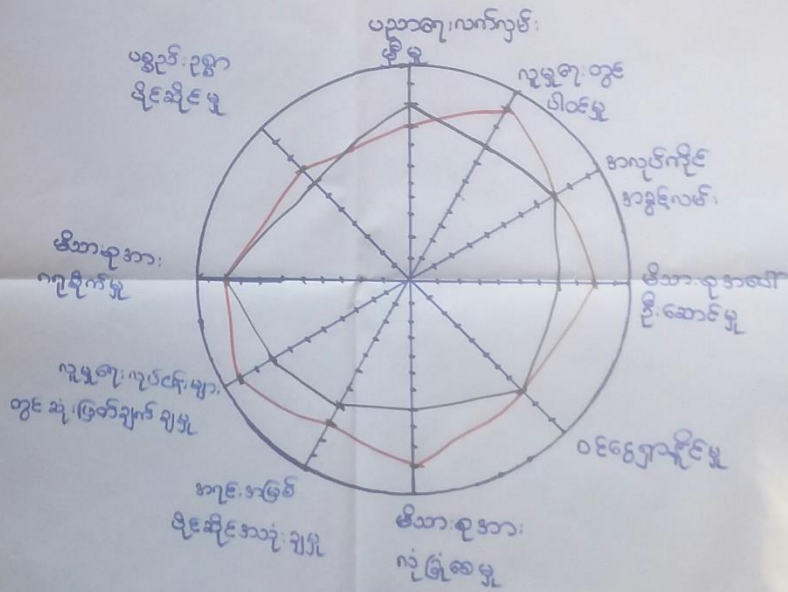 ပညာရေးလက်လှမ်း
မှီမှု
လူမှုရေးတွင်
ပါဝင်မှု
အလုပ်ကိုင်
အခွင့်လမ်း
မိသားစုအပေါ်
ဦးဆောင်မှု
ဝင်ငွေရှာနိုင်မှု
မိသားစုအား
လုံခြုံစေမှု
အရင်းအမြစ်
ပိုင်ဆိုင်အသုံးချမှု
လူမှုရေးလုပ်ငန်းများ
တွင်ဆုံးဖြတ်ချက်ချမှု
မိသားစုအား
ဂရုစိုက်မှု
ပစ္စည်းဥစ္စာ
ပိုင်ဆိုင်မှု